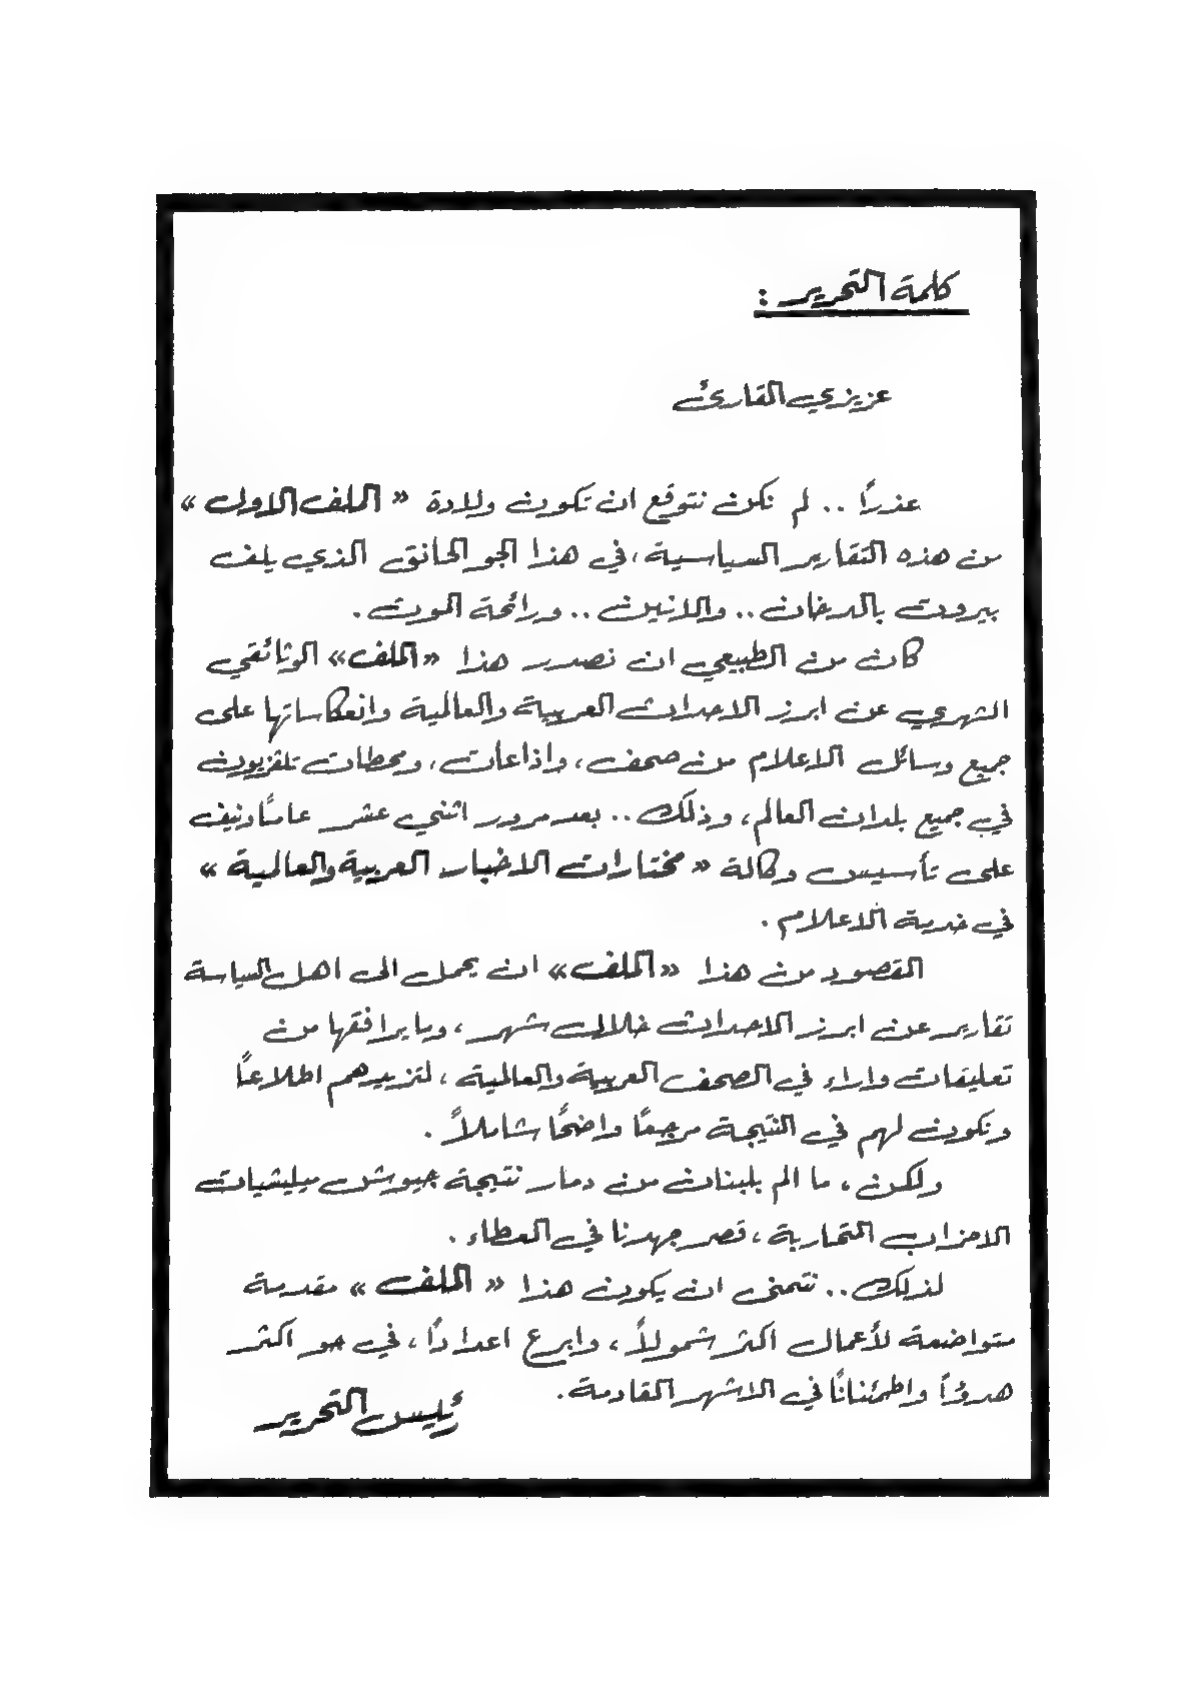 كلمة التحرير :
عزيزي القارئ
عذراً .. لم نكن نتوقع ان تكون ولادة « الملف الاول »
من هذه التقارير السياسية ، في هذا الجو الخانق الذي يلف
بيروت بالدخان .. والانين .. ورائحة الموت .
كان من الطبيعي ان نصدر هذا «الملف» الوثائقي
الشهري عن ابرز الاحداث العربية والعالمية وانعكاساتها على
جميع وسائل الاعلام من صحف ، واذاعات ، ومحطات تلفزيون
في جميع بلدان العالم ، وذلك .. بعد مرور اثني عشر عاماً ونيف
على تأسيس وكالة « مختارات الاخبار العربية والعالمية »
في خدمة الاعلام .
القصود من هذا «الملف» ان يحمل الى اهل السياسة
تقارير عن ابرز الاحداث خلال شهر ، وما يرافقها من
تعليقات واراء في الصحف العربية والعالمية ، لتزيدهم اطلاعاً
وتكون لهم في النتيجة مرجعاً واضحاً شاملاً .
ولكن ، ما الم بلبنان من دمار نتيجة جيوش ميليشيات
الاحزاب المتحاربة ، قصر جهدنا في العطاء .
لذلك .. نتمنى ان يكون هذا « الملف » مقدمة
متواضعة لأعمال اكثر شمولاً ، وابرع اعداداً ، في جو اكثر
هدوءاً واطمئناناً في الاشهر القادمة .
رئيس التحرير